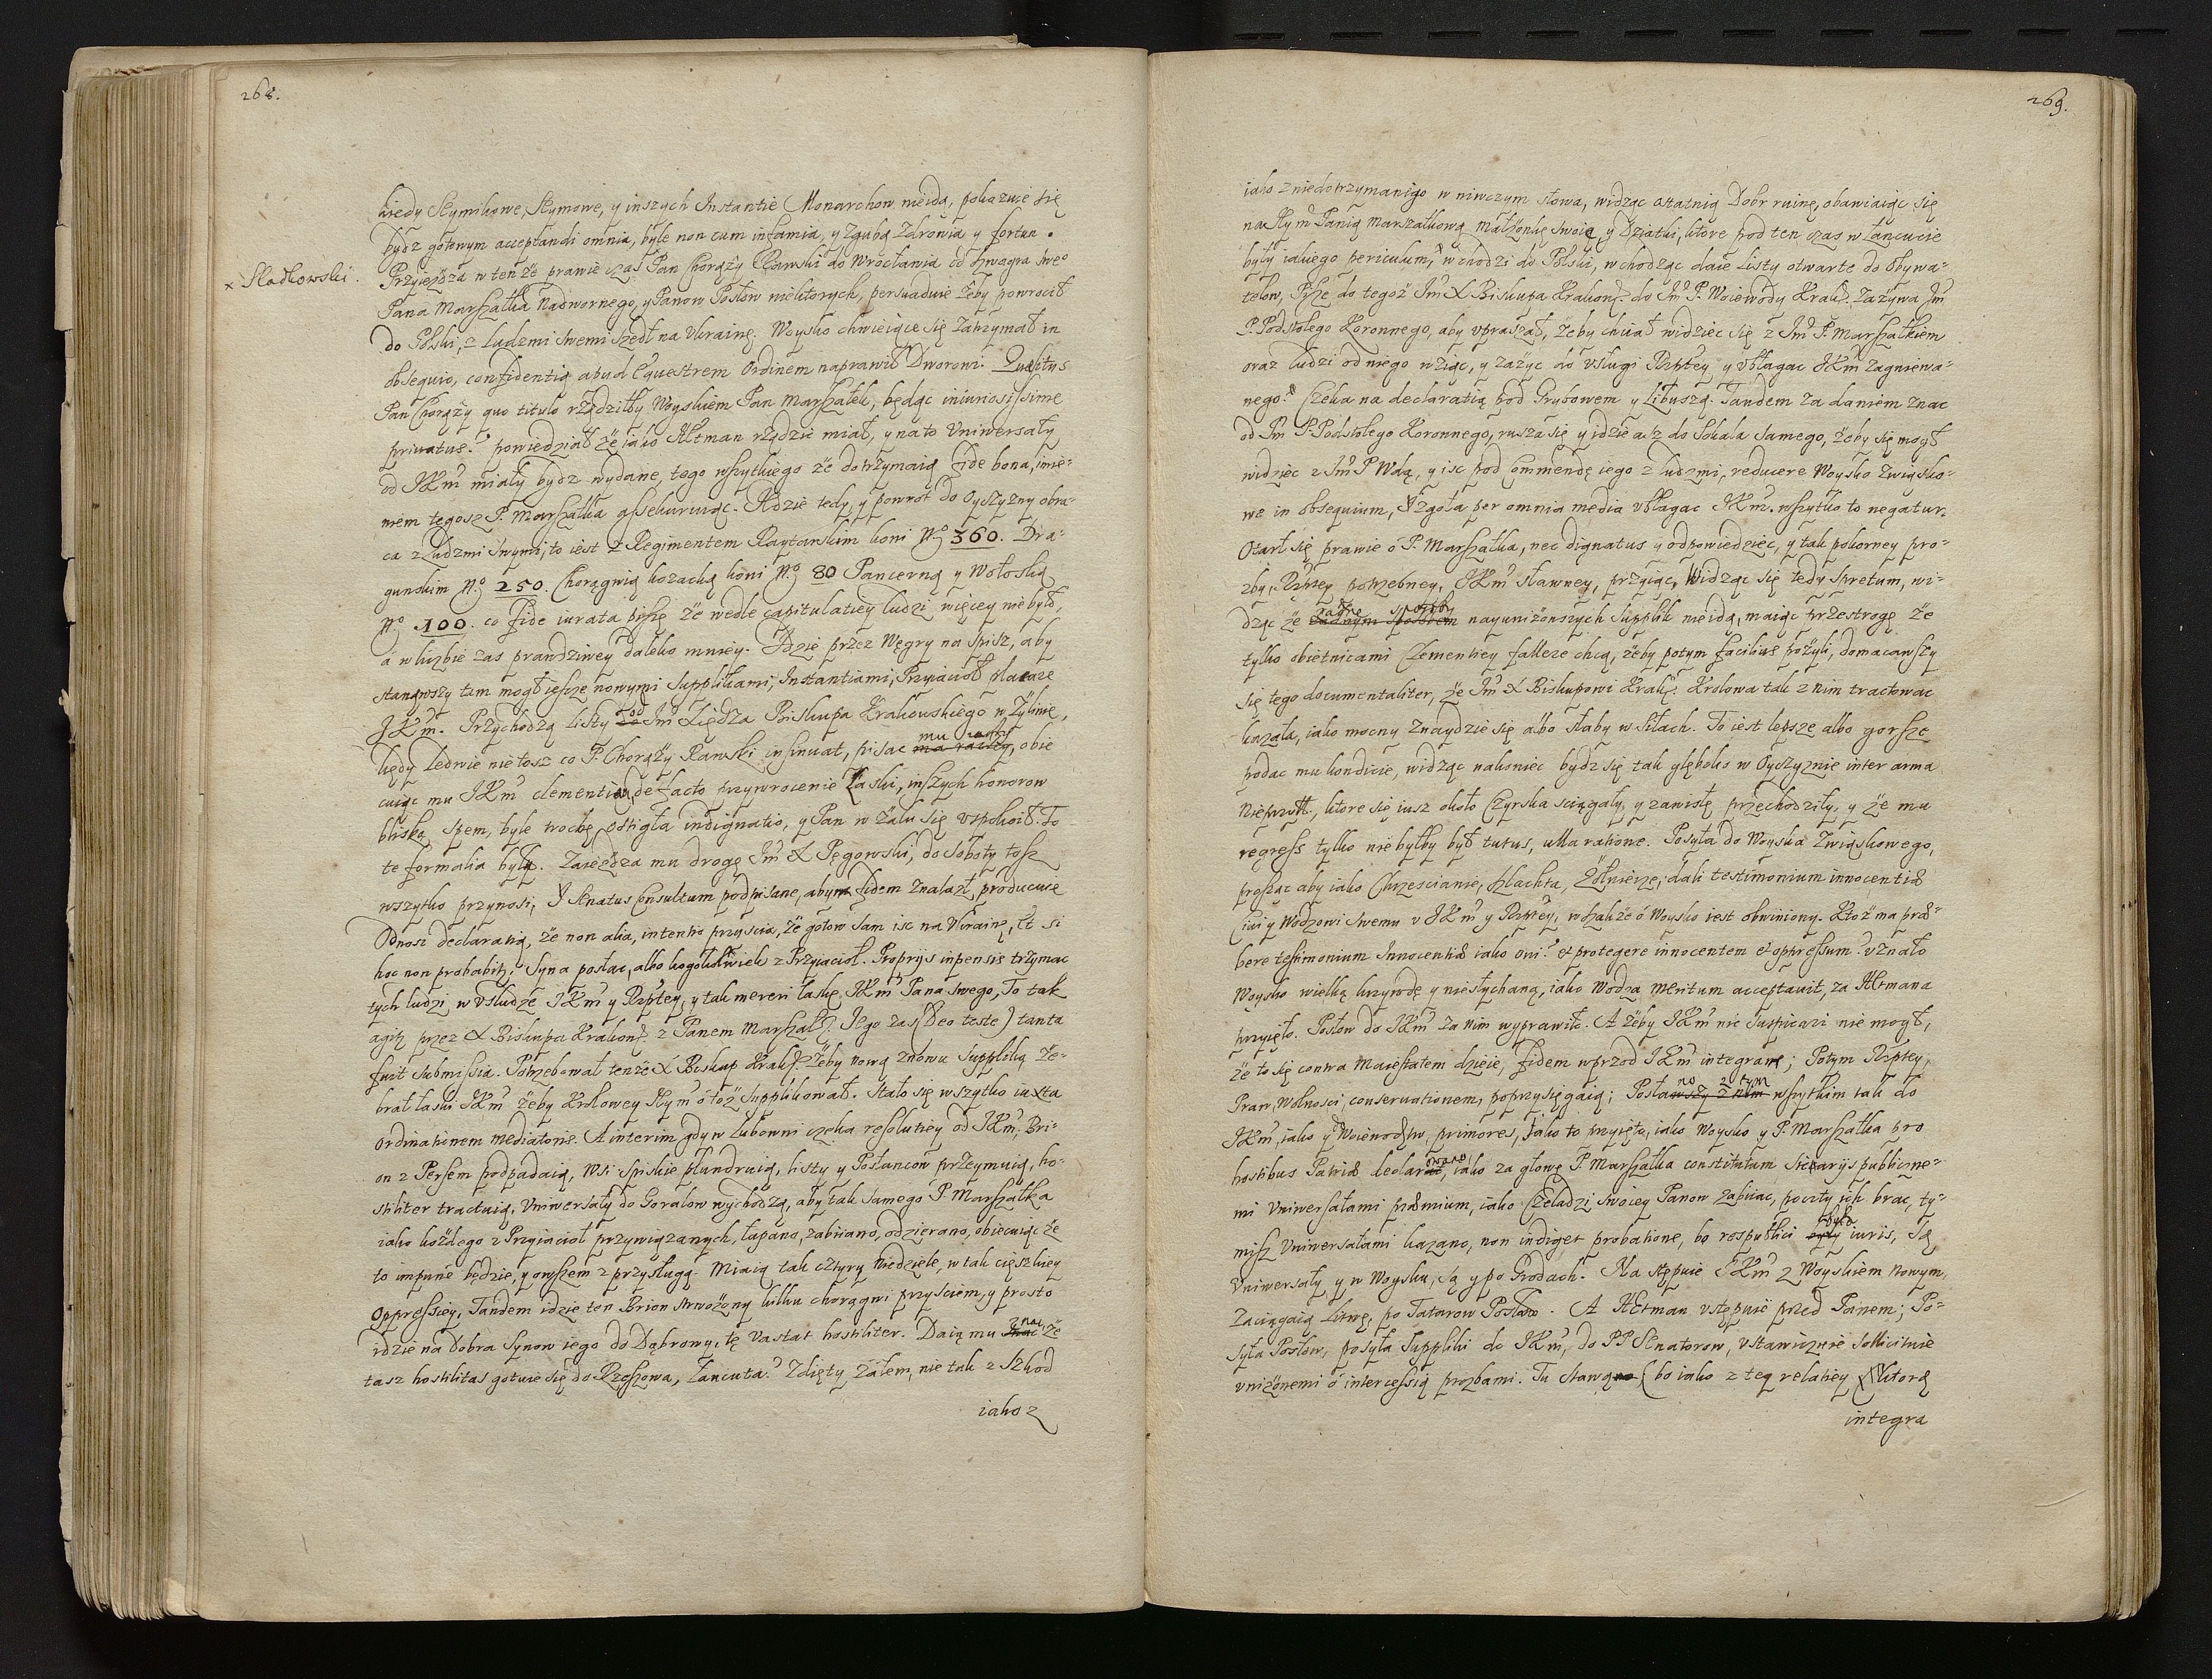 268.
kiedy Seymikowe, Seymowe, y inszych Instantie Monarchow nieidą, pokazuie się
bydz gotowym acceptandi omnia, byle non cum infamia, y zgubą zdrowia y fortun.
x Sladkowski.
Przyieżdza w tenże prawie czas Pan Chorąży Rawski do Wrocławia od szwagra swe°
Pana Marszałka Nadwornego, y Panow Posłow niektorych, persuaduie żeby powrocił
do Polski, z Ludzmi swemi szedł na Ukrainę. Woysko chwieiące się zatrzymał in
obsequio, confidentią apud Equestrem Ordinem naprawił Dworowi. Quæsitus
Pan Chorąży quo titulo rządziłby Woyskiem Pan Marszałek, będąc iniuriosissime
privatus? powiedział że iako Hetman rządzić miał, y na to Uniwersały
od JKm miały bydz wydane, tego wszytkiego że dotrzymaią fide bona, imie-
niem tegosz P. Marszałka assekuruiąc. Idzie tedy, y powrot do Oyczyzny obra-
ca z Ludzmi swymi, to iest z Regimentem Raytarskim koni N° 360. Dra-
gunskim N° 250. Chorągwią kozacką koni N° 80 Pancerną y Wołoską
N° 100. co fide iurata piszę że wedle capitulatiey ludzi więcey nie było,
á w liczbie zas prawdziwey daleko mniey. Idzie przez Węgry na Spisz, aby
stanąwszy tam mogł ieszcze nowymi Supplikami, Instantiami, Przyiacioł placare
JKm. Przychodzą listy od Jm Xiędza Biskupa Krakowskiego w Zylinie,
kędy ledwie nie tosz co P. Chorąży Rawski insinuat, pisac mu raczy, obie
cuiąc mu JKm clementią, de facto przywrocenie Łaski, inszych honorow
bliską spem, byle trochę ostigła indignatio, y Pan w żalu się uspokoił. To
te formalia były. Zaieżdza mu drogę Jm X Pęgowski, do Soboty tosz
wszytko przynosi, y Senatus Consultum podpisane, abym fidem znalazł, producuie
Odnosi declaratią, że non alia, intentio przyscia, że gotow sam isc na Ukrainę, et si
hoc non probabitur; Syna posłac, albo kogokolwiek z Przyiacioł. Proprijs inpensis trzymac
tych ludzi, w usłudze JKm y Rzptey, y tak mereri łaskę JKm Pana swego, To tak
agitur przez X Biskupa Krakow: z Panem Marszał: Jego zas (Deo teste) tanta
fuit submissia. Potrzebował tenże X Biskup Krak: żeby nową znowu Suppliką że-
brał łaski JKm żeby Krolowey Jeym o toż Supplikował. Stało się wszytko iuxta
ordinationem mediatoris. A interim gdy w Lubowni czeka resolutiey od JKm; Bri-
on z Persem podpadaią, Wsi Spiskie plundruią, listy y Posłancow przeymuią, ho-
stiliter tractuią, Uniwersały do Goralow wychodzą, aby tak samego P. Marszałka
iako każdego z Przyiacioł przywiązanych, łapano, zabiiano, odzierano, obiecuiąc że
to impune będzie, y owszem z przysługą. Miaią tak cztyry Niedziele, w tak cięszkiey
Oppressiey, Tandem idzie ten Brion strwożony kilku chorągwi przysciem, y prosto
idzie na Dobra Synow iego do Dąbrowy, tę vastat hostiliter. Daią mu znac że
tasz hostilitas gotuie się do Rzeszowa, Łancuta? Zdięty żalem, nie tak z Szkod
iako z
269.
iako z niedotrzymanigo w niwczym słowa, widząc ostatnią Dobr ruinę, obawiaiąc się
na Jeym Panią Marszałkową Małżonkę swoię, y Dziatki, ktore pod ten czas w Łancucie
były iakiego periculum, wchodzi do Polski, wchodząc daie Listy otwarte do Obywa-
telow, Pisze do tegoż Jm X Biskupa Krakow: do Jm P. Woiewody Krak: zażywa Jm
P. Podstolego Koronnego, aby upraszał, żeby chciał widziec się z Jm P. Marszałkiem
oraz ludzi od niego wziąc, y zażyc do usługi Rzptey y ubłagac JKm zagniewa-
nego? Czeka na declaratią pod Grybowem y Libuszą. Tandem za daniem znac
od Jm P. Podstolego Koronnego, rusza się y idzie asz do Sokala samego, żeby się mogł
widziec z Jm P Wdą, y isc pod Commendę iego z ludzmi, reducere Woysko Związko-
we in obsequium, y zgoła per omnia media ubłagac JKm. wszytko to negatur.
Otarł się prawie o P. Marszałka, nec dignatus y odpowiedziec, y tak pokorney pro-
zby, Rzptey potrzebney, JKm sławney, przyiąc, Widząc się tedy spretum, wi-
dząc że żadne sposoby nayuniżenszych Supplik nie idą, maiąc przestrogę że
tylko obietnicami Clementiey fallere chcą, żeby potym facilius pożyli, domacawszy
się tego documentaliter, że Jm X Biskupowi Krak: Krolowa tak z nim tractowac
kazała, iako mocny znaydzie się albo słaby w Siłach. To iest lepsze albo gorsze
podac mu kondicie, widząc nakoniec bydz się tak głęboko w Oyczyznie inter arma
Nieprzyił, ktore się iusz około Czyrska sciągały, y zawisłę przechodziły, y że mu
regress tylko nie byłby był tutus, ulla ratione. Posyła do Woyska Związkowego,
prosząc aby iako Chrzescianie, szlachta, Żołnierze, dali testimonium innocentiæ
Civi y Wodzowi swemu u JKm y Rzptey, wszakże o Woysko iest obwiniony. Ktoż ma præ-
bere testimonium Innocentiæ iako oni? et protegere innocentem et oppressum? uznało
Woysko wielką krzywdę y niesłychaną, iako Wodza meritum acceptavit, za Hetmana
przyięło. Posłow do JKm za nim wyprawiło. A żeby JKm nie suspicari nie mogł,
że to się contra Maiestatem dzieie, fidem wprzod JKm integram; Potym Rzptey,
Praw, Wolnosci, conservationem, poprzysięgaią; Posłano z tym wszytkim tak do
JKm, iako y Woiewodztw, primores, iako to przyięto, iako Woysko y P. Marszałka pro
hostibus Patriæ declarowano, iako za głowę P. Marszałka constitutum sicarijs publiczne-
mi Uniwersałami præmium, iako Czeladzi swoiey Panow zabiiac, poczty ich brac, ty-
misz Uniwersałami kazano, non indiget probatione, bo rospublici było iuris, Są
Uniwersały y w Woysku, są y po Grodach. Na stępuie JKm z Woyskiem nowym,
Zaciągaią Litwę, po Tatarow Posłano. A Hetman ustępuie przed Panem; Po-
syła Posłow, posyła Suppliki do JKm, do PP Senatorow, ustawicznie sollicituie
uniżonemi o intercessią prozbami. Tu stawa (bo iako z teg relatiey ktorą
integra